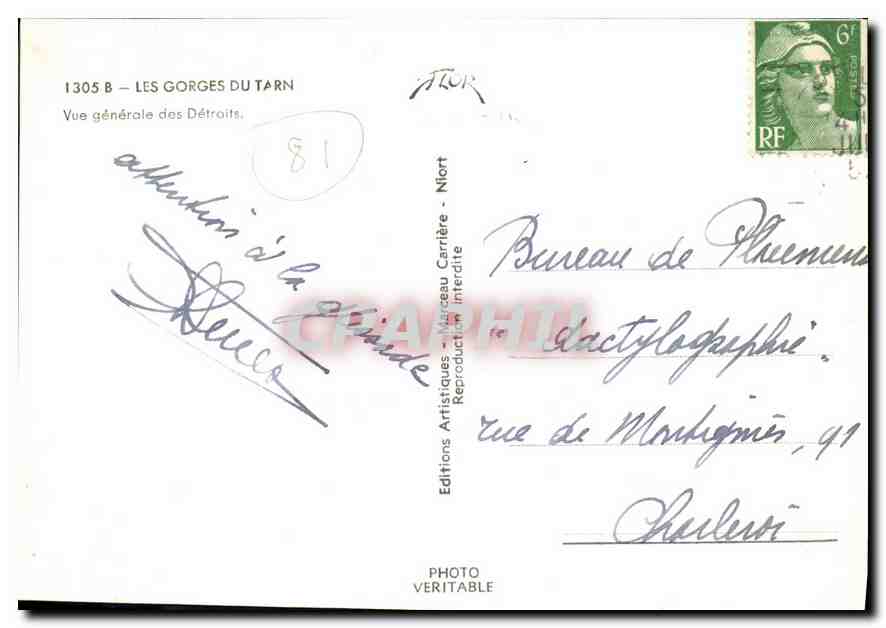 1305 B — LES GORGES DU TARN
Vue générale des Détroits.
81
attention à la
FLOR
Editions Artistiques - Marceau Carrière - Niort
Reproduction interdite
6F
POSTES
RF
CPAPHIL
Bureau de
"dactylographie"
rue de Montignies, 91
Charleroi
PHOTO
VERITABLE